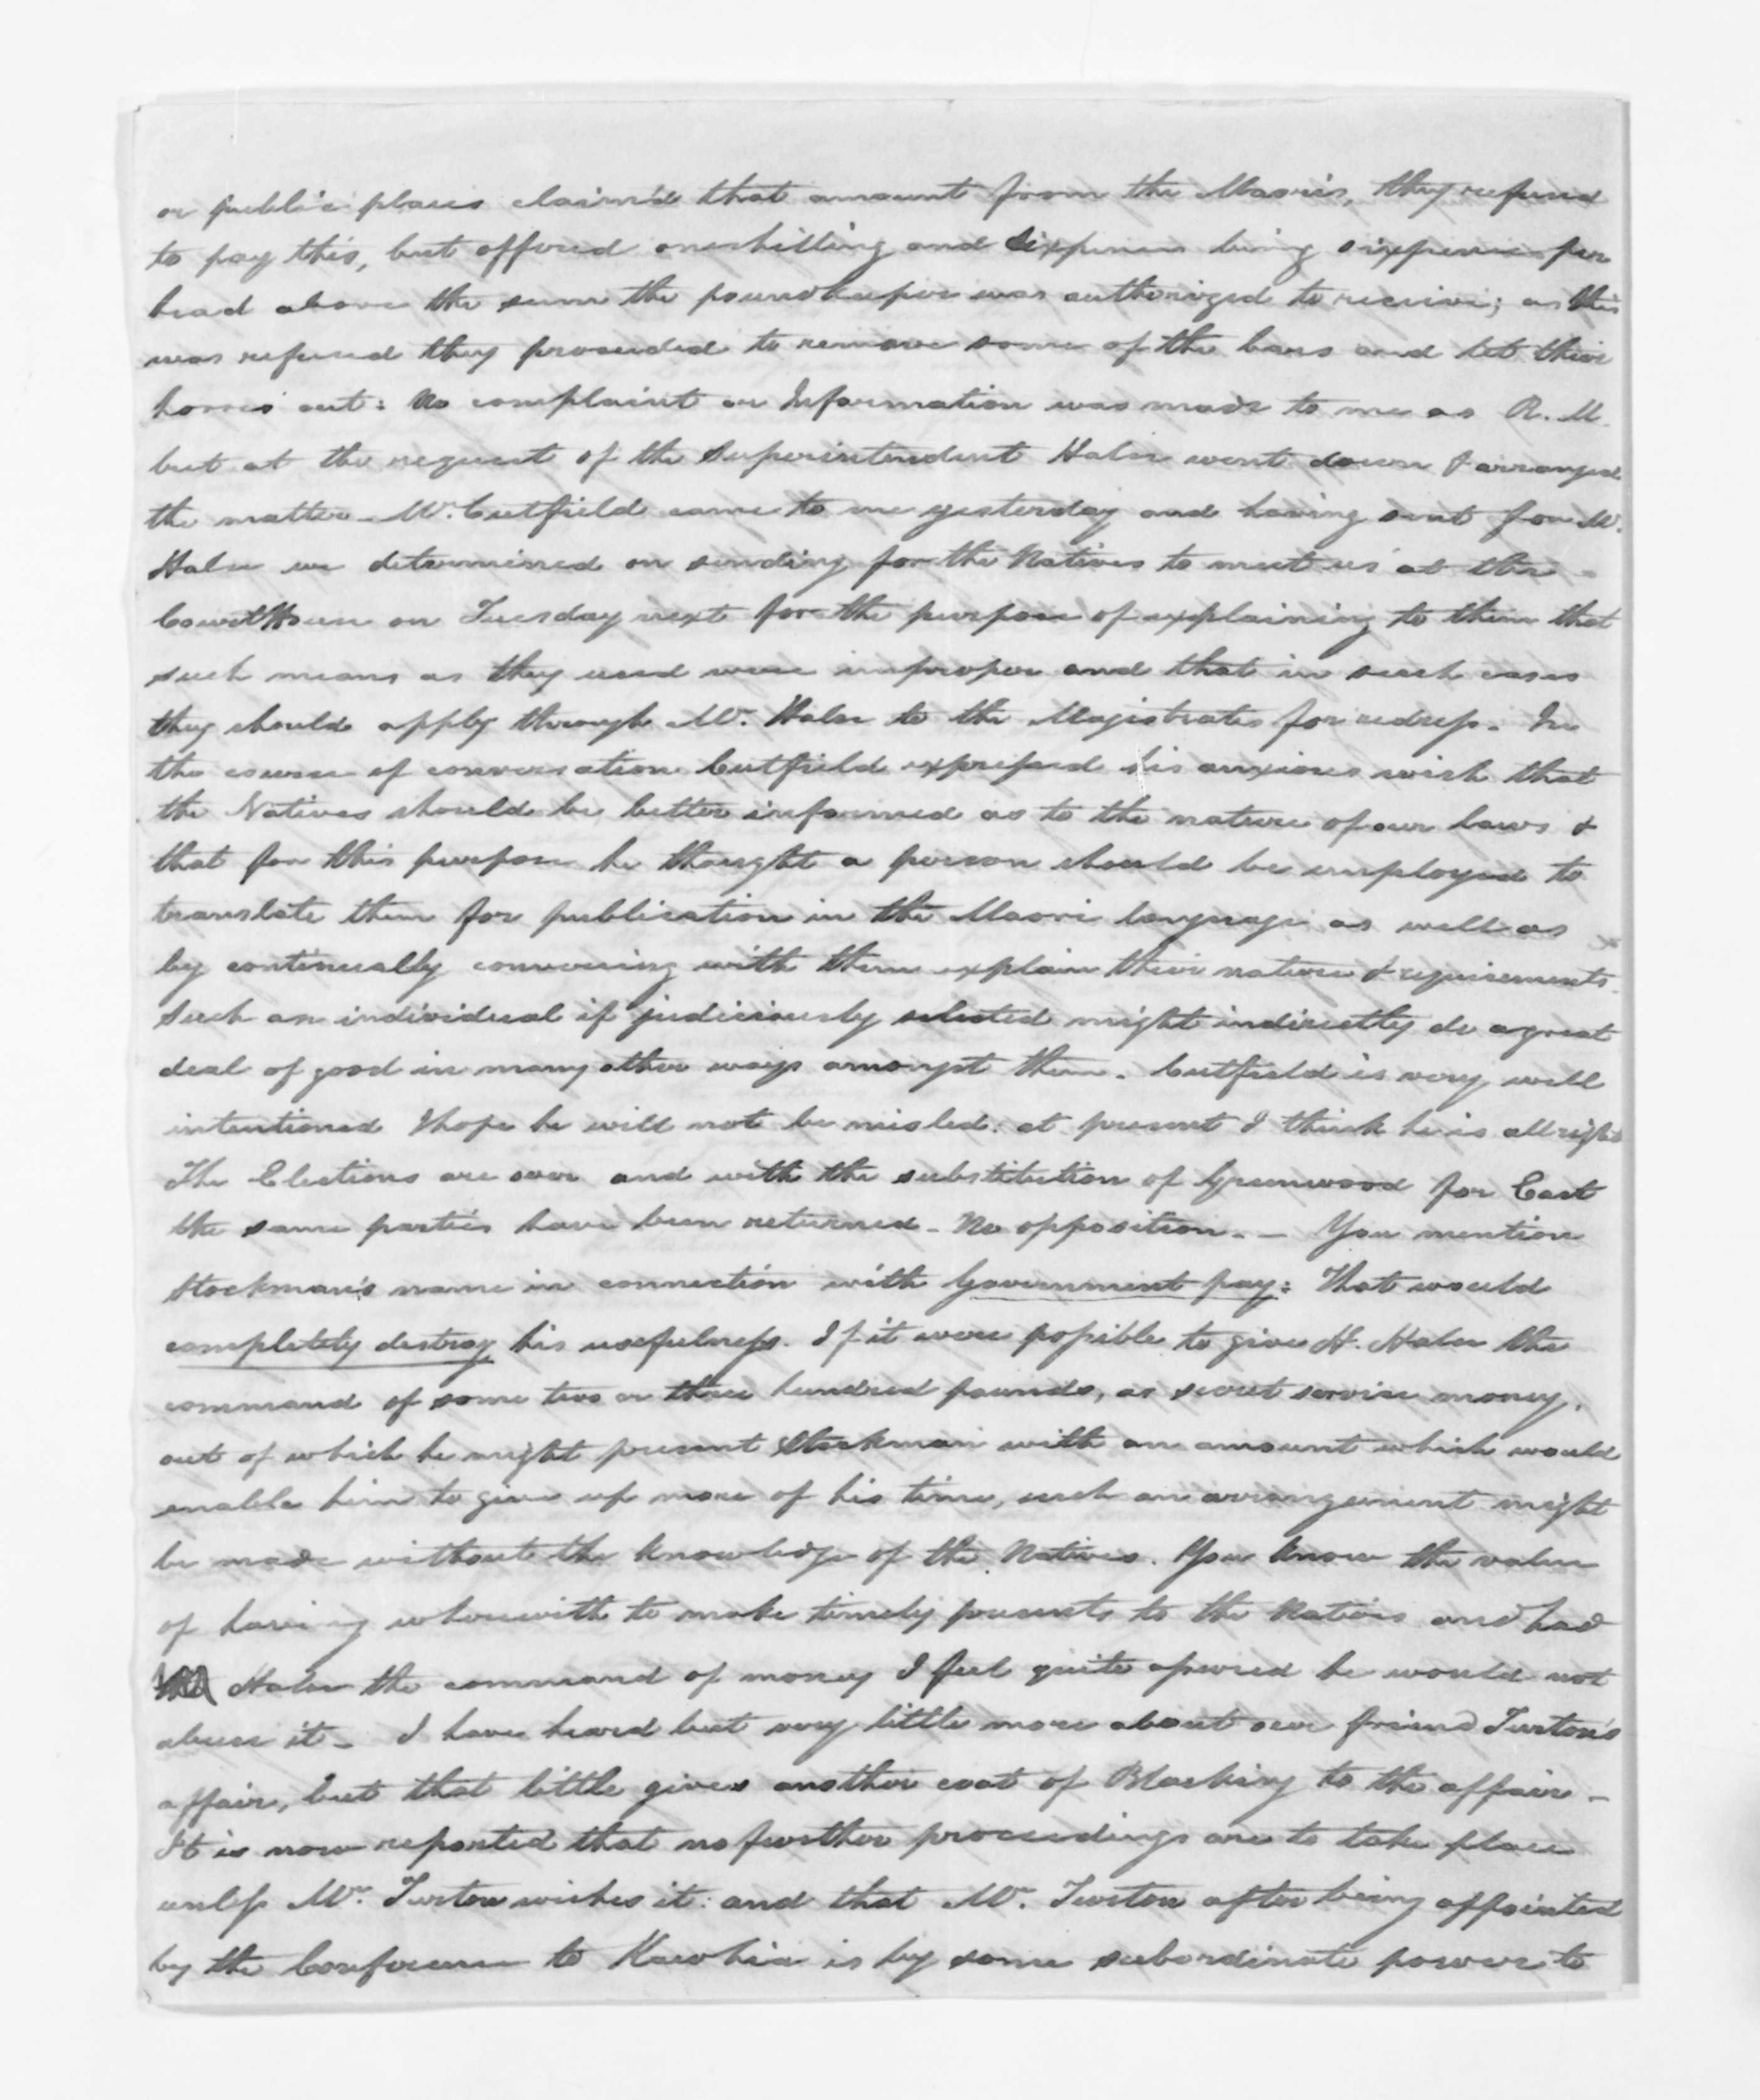 or public places claim'd that amount from the Maories, they refused
to pay this, but offered one shilling and sixpence being sixpence per
head above the sum the poundkeeper was authorized to receive; as this
was refused they proceeded to remove some of the bars and let their
horses out: No complaint or Information was made to me as R.M.
but at the request of the Superintendent Halse went down & arranged
the matter - Mr. Cutfield came to me yesterday and having sent for Mr.
Halse we determined on sending for the Natives to meet us at the
Court House on Tuesday next for the purpose of explaining to them that
such means as they used were improper and that in such cases
they should apply through Mr. Halse to the Magistrates for redress. In
the course of conversation Cutfield expressed his anxious wish that
the Natives should be better informed as to the nature of our laws &
that for this purpose he thought a person should be employed to
translate them for publication in the Maori language as well as
by continually conversing with them explain their nature & requirements.
Such an individual if judiciously selected might indirectly do a great
deal of good in many other ways amongst them. Cutfield is very well
intentioned I hope he will not be misled: at present I think he is all right
The Elections are over and with the substitution of Greenwood for East
the same parties have been returned - No opposition. - You mention
Stockman's name in connection with Government pay: That would
completely destroy his usefulness. If it were possible to give H. Halse the
command of some two or three hundred pounds, as secret service money,
out of which he might present Stockman with an amount which would
enable him to give up more of his time, such an arrangement might
be made without the knowledge of the Natives. You know the value
of having wherewith to make timely presents to the Natives and had
Halse the command of money I feel quite assured he would not
abuse it - I have heard but very little more about our friend Turton's
affair, but that little gives another coat of Blacking to the affair -
It is now reported that no further proceedings are to take place
unless Mr. Turton wishes it: and that Mr. Turton after being appointed
by the Conference to Kawhia is by some subordinate power to